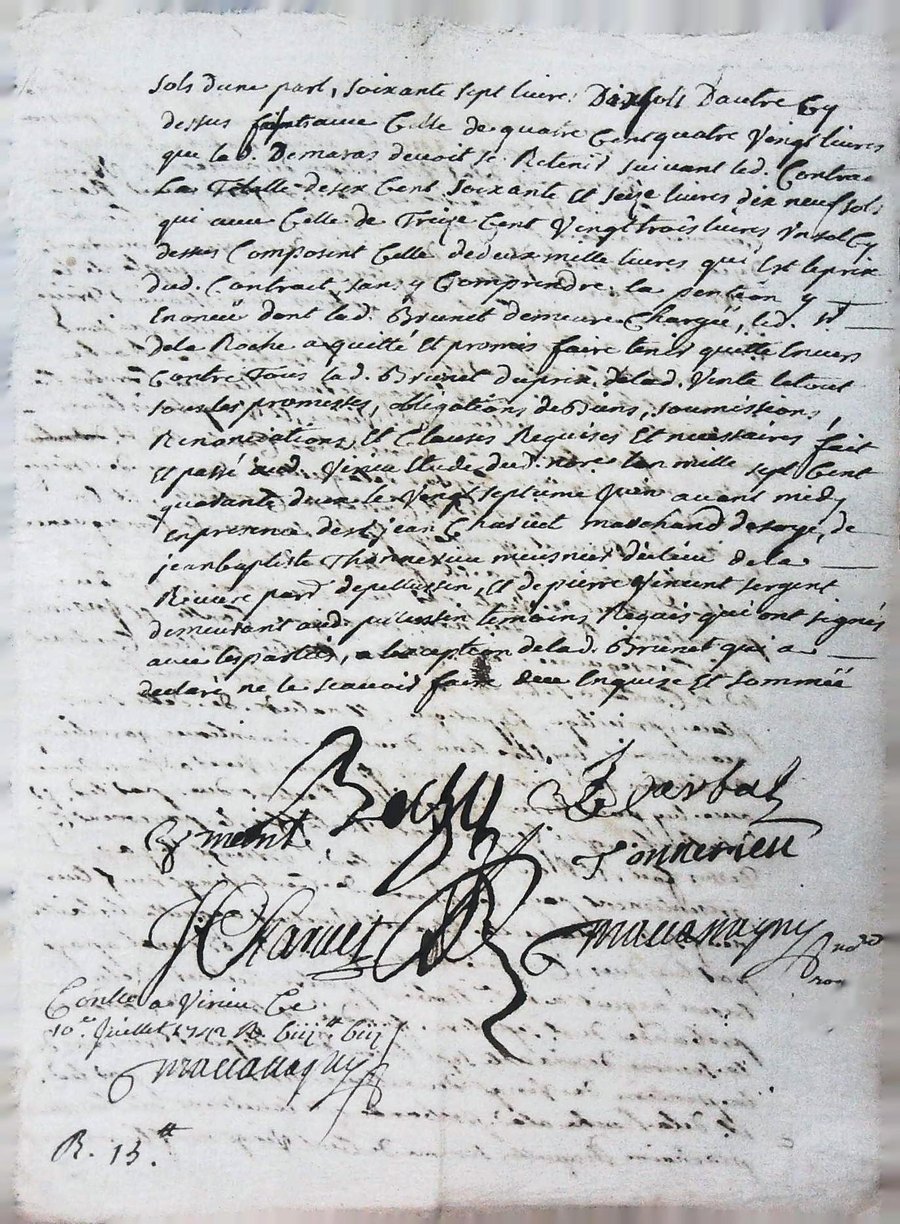 sols dune part, soixante sept livres Dix sols Dautre Cy
dessus faists avec Celle de quatre Cent quatre Vingt livres
que lad. Demaras devoit se Retenir suivant led. Contract
La Totalle de six Cent soixante et seize livres dix neuf sols
qui avec Celle de Treize Cent Vingt trois livres Un sol Cy
dessus Composent Celle de deux mille livres qui Est le prix
dud. Contract, sans y Comprendre la pention y
Enoncée dont lad. Brunet demeure Chargée, led. sr
Dela Roche a quitté Et promis faire tenir quitte Envers
Contre Tous lad. Brunet du prix de lad. Vente le tout
sous les promesses, obligations de Biens, soumissions,
Renonciations, Et Clauses Requises Et necessaires, fait
Et passé aud. Virieu Etude dud. nore lan mille sept Cent
quarante deux le Vingt septieme Juin avant midy
en presence de sr jean Charvet marchand de soye, de
jean baptiste Thonnerieu meusnier du lieu de la
Riviere paroisse de pellussin, Et de pierre Vincent sergent
demeurant aud. pellussin temoins Requis qui ont signés
avec les parties, a lexception de lad. Brunet qui a
declaré ne le scavoir faire de ce Enquise Et sommée
Tonnerieu
J Charvet
Contrlé a Virieu Ce
10e Juillet 1742
R. 13.#